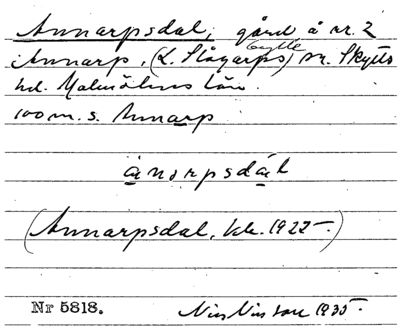 Annarpsdal, gård å nr. 2
Annarp, (L. Slågarps) sn. Skytts
hd. Malmöhus län.
100 m. s. Annarp
ànorpsdàl
(Annarpsdal, kk. 1922.)
Nr 5818. Nils Nilsson 1935.